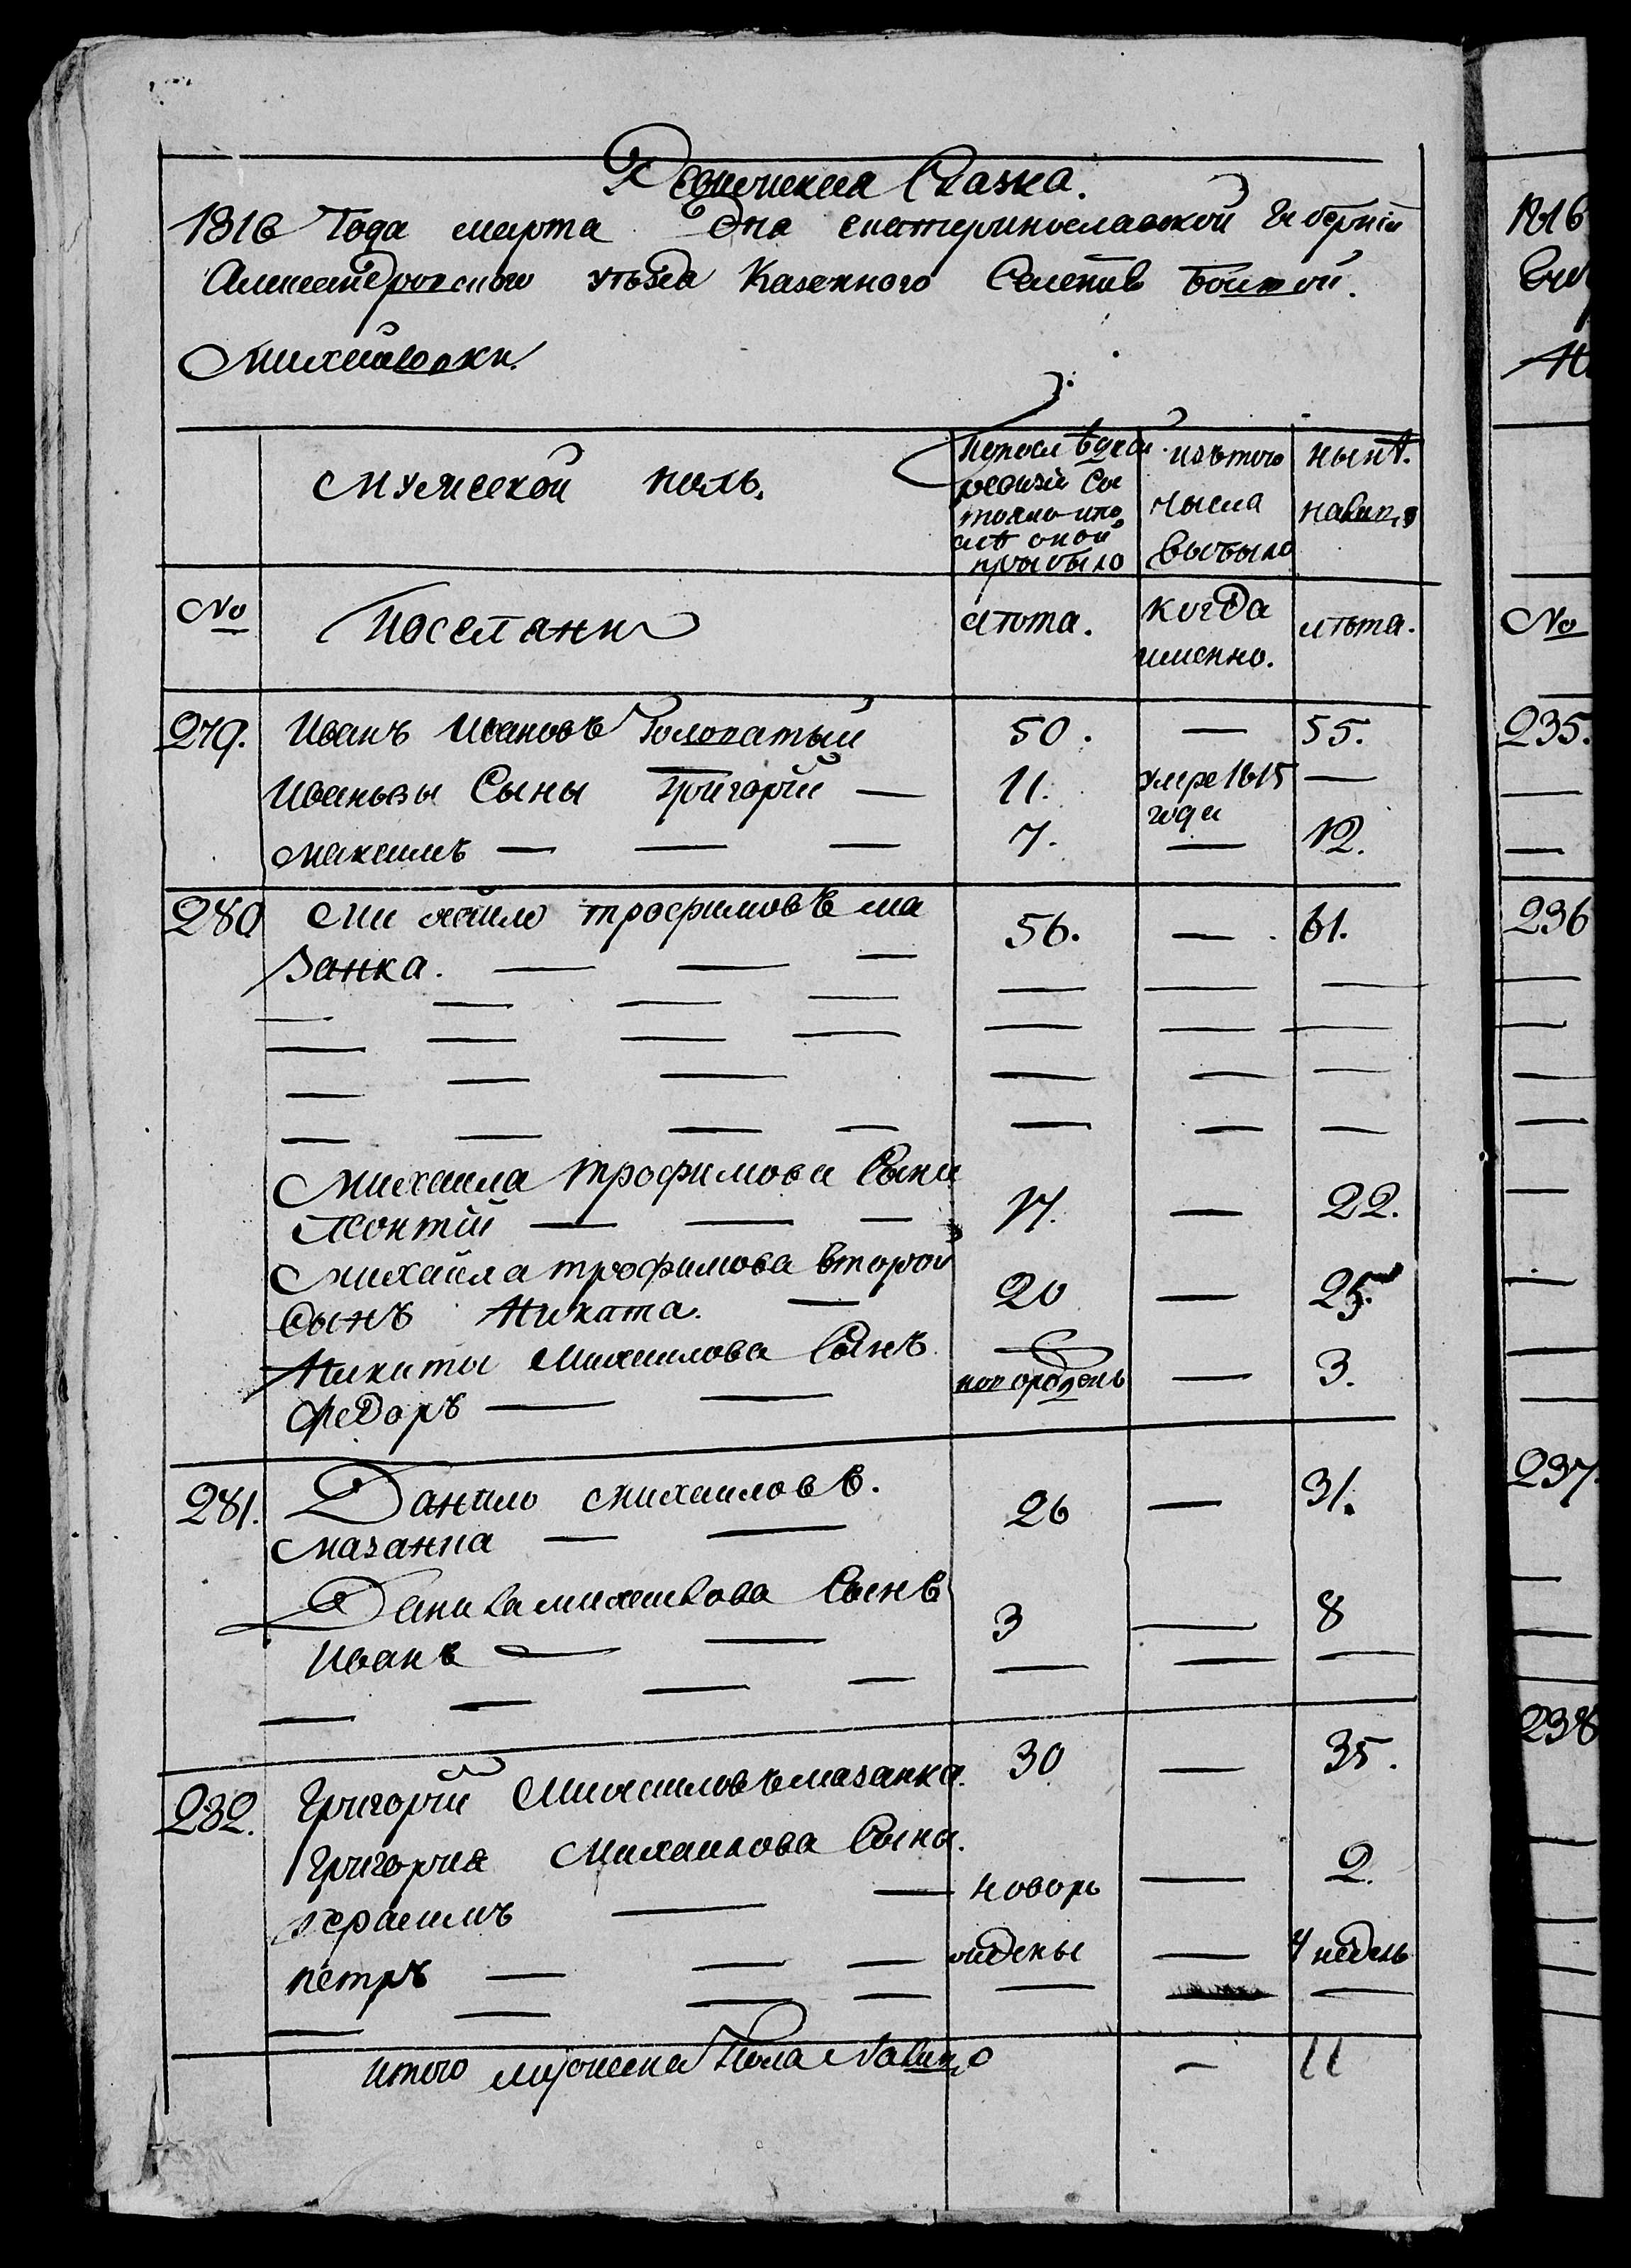 Ревижская Сказка.
1816 Года марта Дня екатеринославской Губернии
Александровского уѣзда Казенного Селенiя
Михайловки.
мужеской полъ.
По последней ревизiи состояло и после оной прибыло
изътого числа выбыло
нынѣ налицо
№ Поселяне
лѣта. когда именно. лѣта.
279. Иванъ Ивановъ Голопатый 50. — 55.
Ивановы Сыны Григорiй — 11. умре 1815 года —
Максимъ — — — 7. — 12.
280 Михайло трофимовъ ма
занка. — — — 56. — 61.
Михаила трофимова Сынъ
Леонтiй — — — 17. — 22.
Михаила трофимова второй
Сынъ Никита. — 20 — 25.
Никиты Михаилова Сынъ
Федоръ — — новорожденъ — 3.
281. Данило михаиловъ.
мазанка — — 26 — 31.
Данила михаилова Сынъ
Иванъ — — 3 — 8
282. Григорiй Михаиловъ мазанка. 30 — 35.
Григория Михаилова Сыны.
герасимъ — — новорож — 2.
петръ — — — дены — 4 недель
итого мужеска Пола Налицо — 11
1816
№
235.
236
237.
238